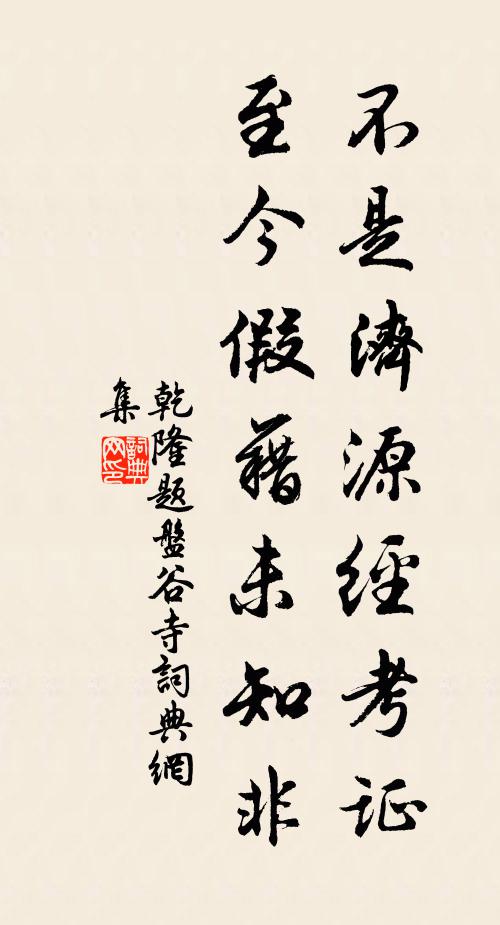 不是濟源經考证
至今假藉未知非
乾隆題盤谷寺詞典網
集
詞典
网印